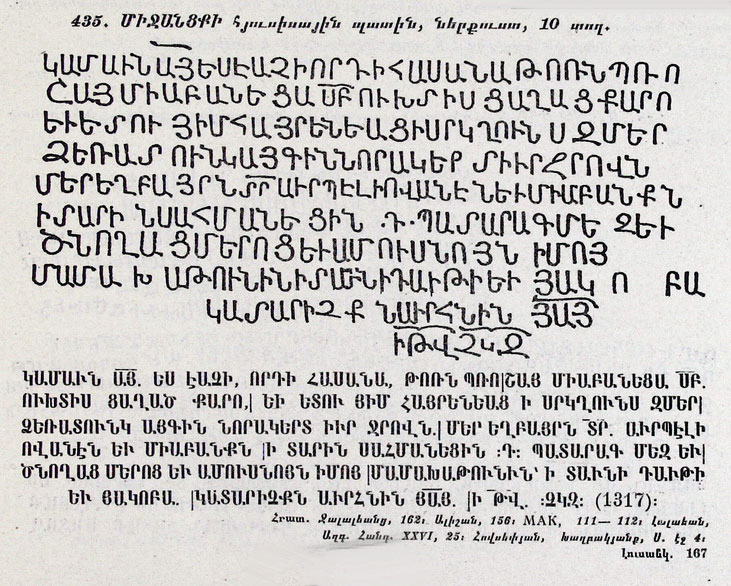 435. ՄԻՋԱՆՑՔԻ հյուսիսային պատին, ներքուստ, 10 տող.
ԿԱՄԱՒՆԱՅԵՍԷԱՉԻՈՐԴԻՀԱՍԱՆԱԹՈՌՆՊՌՈ
ՇԱՅՄԻԱԲԱՆԵՑԱՍԲՈՒԽՏԻՍՑԱՂԱՑՔԱՐՈ
ԵՒԵՏՈՒՅԻՄՀԱՅՐԵՆԵԱՑԻՍՐԿՂՈՒՆՍԶՄԵՐ
ՁԵՌԱՏՈՒՆԿԱՅԳԻՆՆՈՐԱԿԵՐՏԻՒՐՀՐՈՎՆ
ՄԵՐԵՂԲԱՅՐՆՏՐԱՒՐՊԷԼԻՈՎԱՆԷՆԵՒՄԻԱԲԱՆՔՆ
ԻՏԱՐԻՆՍԱՀՄԱՆԵՑԻՆ.Դ.ՊԱՏԱՐԱԳՄԵԶԵՒ
ԾՆՈՂԱՑՄԵՐՈՑԵՒԱՄՈՒՍՆՈՅՆԻՄՈՅ
ՄԱՄԱԽԱԹՈՒՆԻՆԻՏԱՒՆԻԴԱՒԹԻԵՒՅԱԿՈԲԱ
ԿԱՏԱՐԻՉՔՆԱՒՐՀՆԻՆՅԱՅ
ԻԹՎՉԿԶ
ԿԱՄԱՒՆ ԱՅ. ԵՍ ԷԱՉԻ, ՈՐԴԻ ՀԱՍԱՆԱ, ԹՈՌՆ ՊՌՈ|ՇԱՅ ՄԻԱԲԱՆԵՑԱ ՍԲ.
ՈՒԽՏԻՍ ՑԱՂԱԾ ՔԱՐՈ,| ԵՒ ԵՏՈՒ ՅԻՄ ՀԱՅՐԵՆԵԱՑ Ի ՍՐԿՂՈՒՆՍ ԶՄԵՐ|
ՁԵՌԱՏՈՒՆԿ ԱՅԳԻՆ ՆՈՐԱԿԵՐՏ ԻՒՐ ՋՐՈՎՆ.| ՄԵՐ ԵՂԲԱՅՐՆ ՏՐ. ԱՒՐՊԷԼԻ
ՈՎԱՆԷՆ ԵՒ ՄԻԱԲԱՆՔՆ |Ի ՏԱՐԻՆ ՍԱՀՄԱՆԵՑԻՆ :Դ: ՊԱՏԱՐԱԳ ՄԵԶ ԵՒ|
ԾՆՈՂԱՑ ՄԵՐՈՑ ԵՒ ԱՄՈՒՍՆՈՅՆ ԻՄՈՅ |ՄԱՄԱԽԱԹՈՒՆԻՆ՝ Ի ՏԱՒՆԻ ԴԱՒԹԻ
ԵՒ ՅԱԿՈԲԱ. |ԿԱՏԱՐԻՉՔՆ ԱՒՐՀՆԻՆ ՅԱՅ. |Ի ԹՎ. :ՉԿԶ: (1317):
Հրատ. Ջալալեանց, 162: Ալիշան, 156: МАК, 111—112: Լալաեան,
Ազգ. Հանդ. XXVI, 25: Հովսեփյան, Խաղբակյանք, Ա. էջ 4:
Լուսանկ. 167